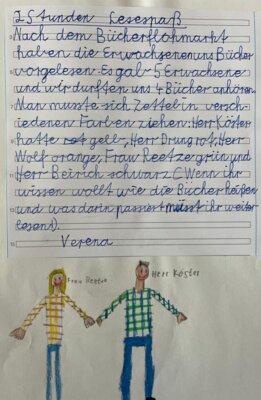 2 Stunden Lesespaß
Nach dem Bücherflohmarkt
haben die Erwachsenen uns Bücher
vorgelesen. Es gab 5 Erwachsene
und wir durften uns 4 Bücher anhören.
Man musste sich Zettel in versch-
iedenen Farben ziehen: Herr Köster
hatte rot gelb, Herr Drung rot, Herr
Wolf orange, Frau Reetze grün und
Herr Beirich schwarz (Wenn ihr
wissen wollt wie die Bücher heißen
und was darin passiert müsst ihr weiter
lesen!).
Verena
Frau Reetze
Herr Köster